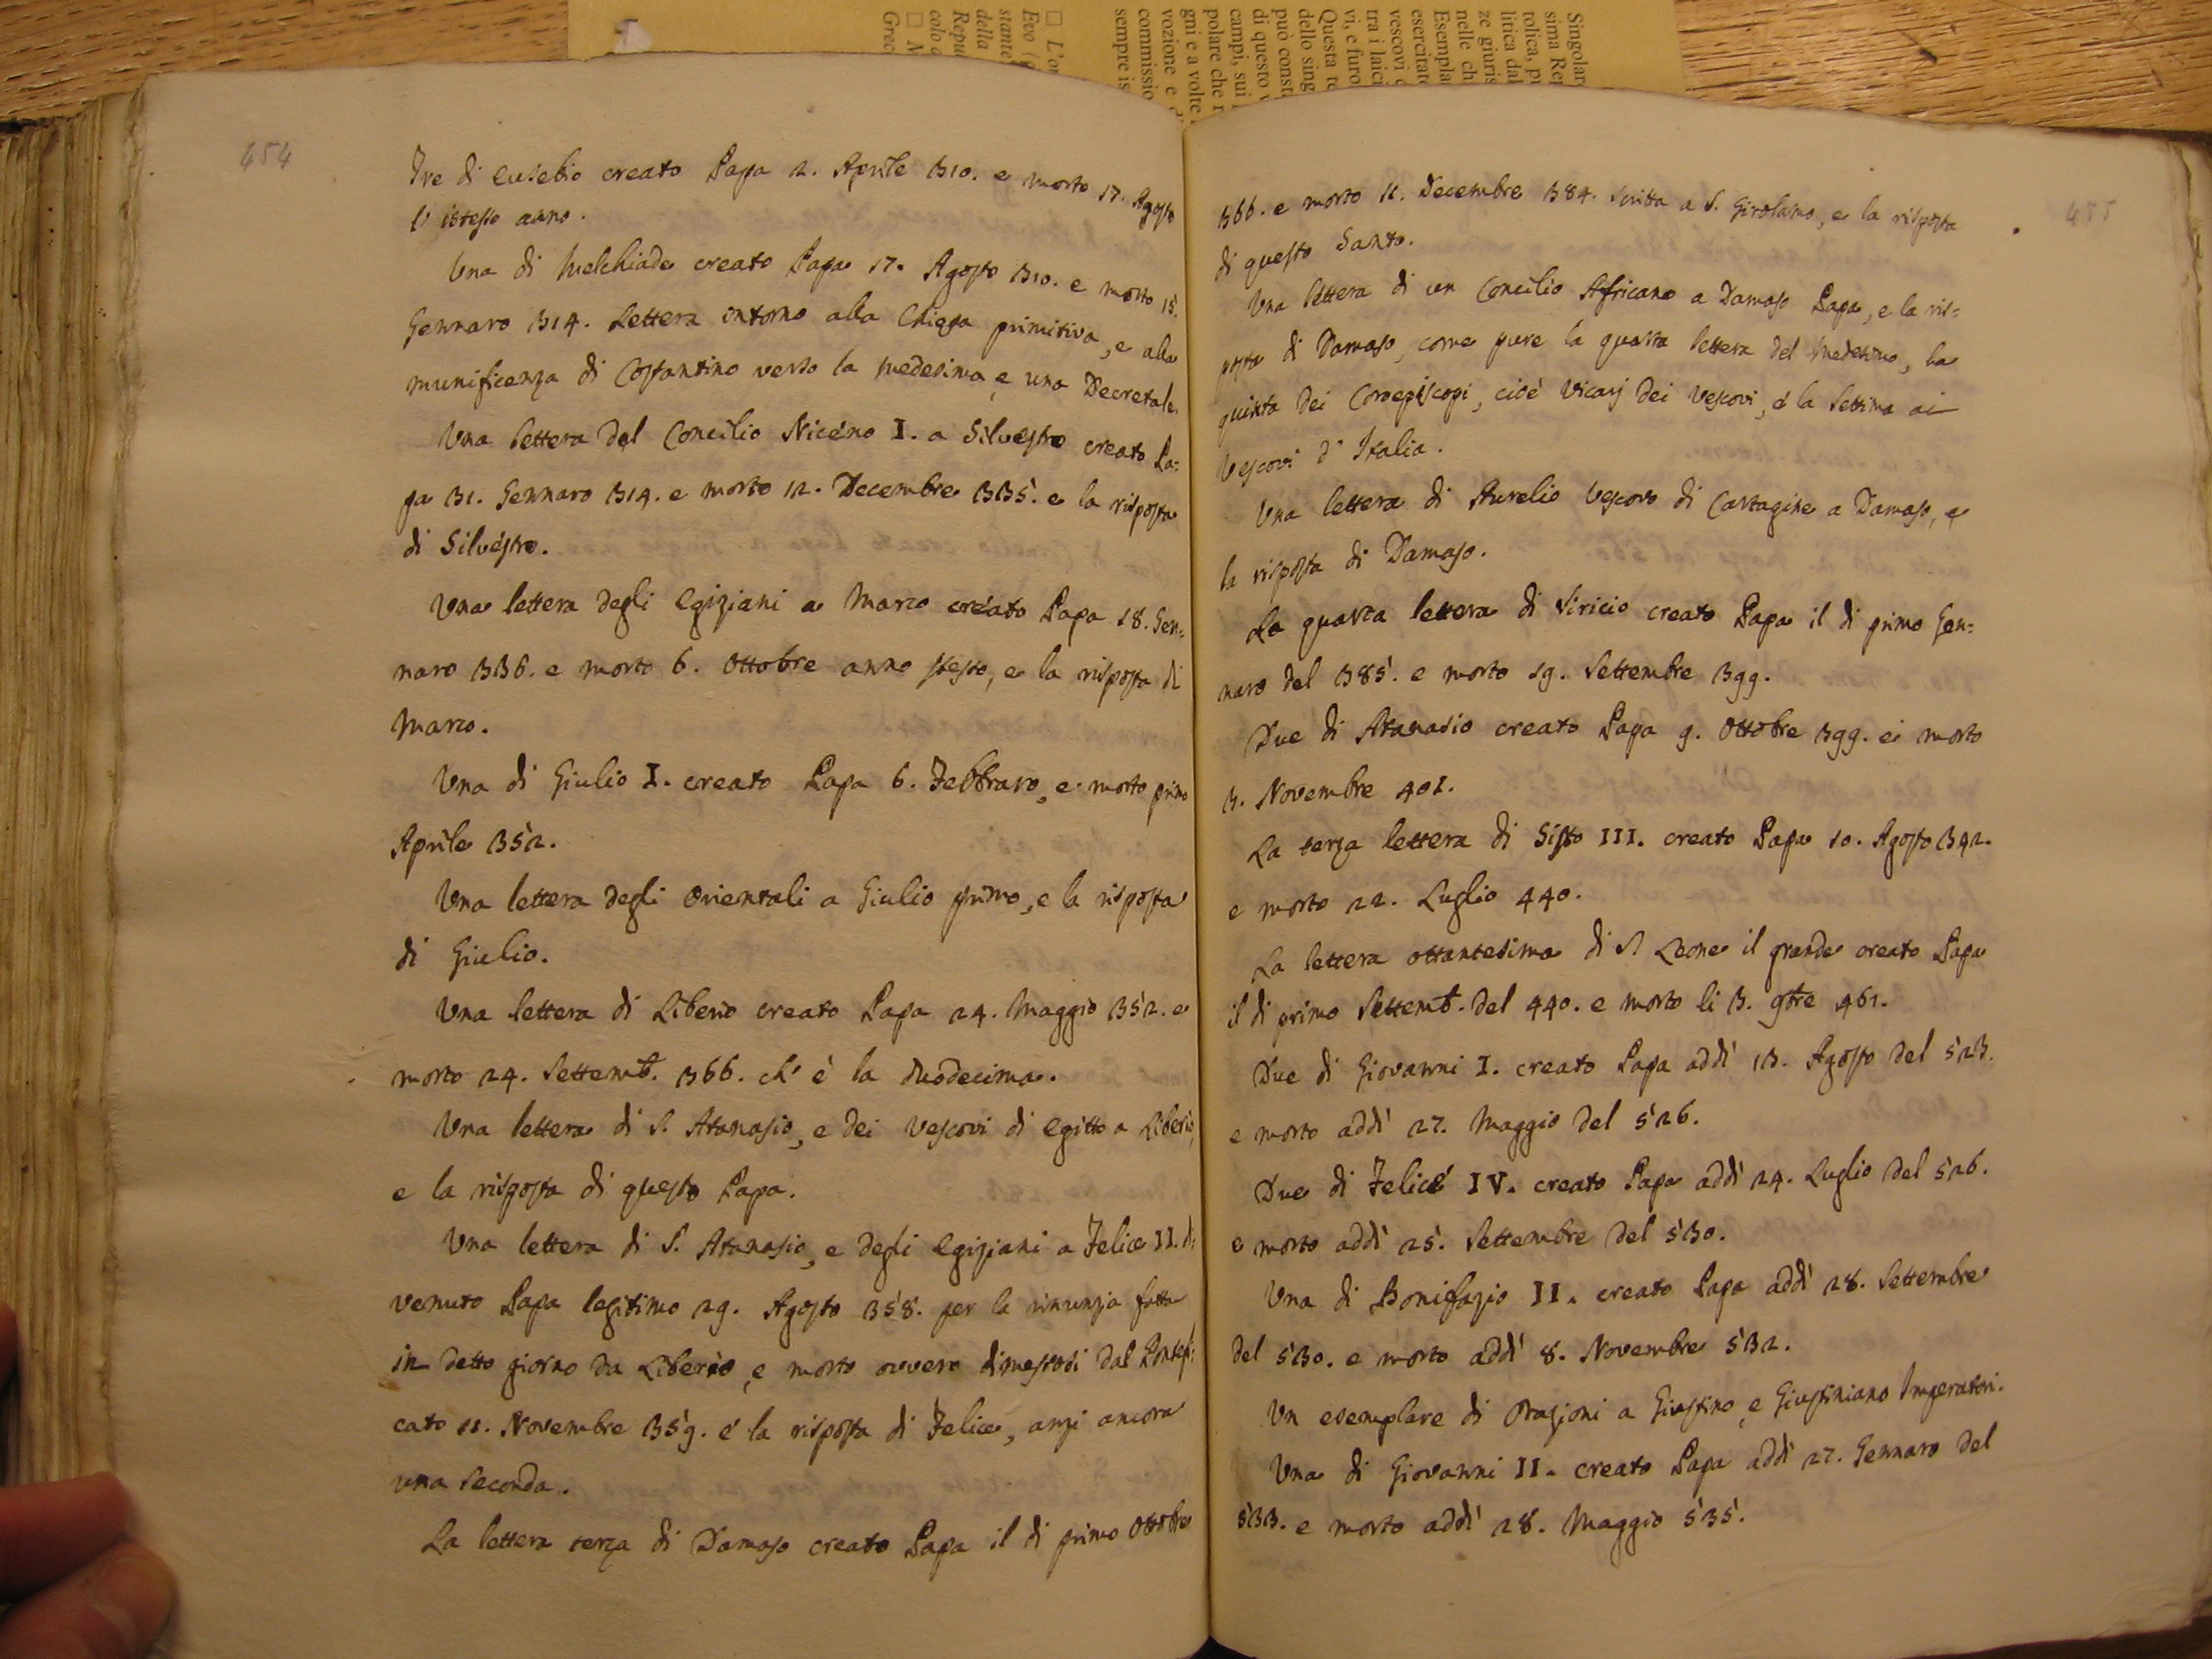 454
Tre di Eusebio creato Papa 2. Aprile 310. e morto 17. Agosto
l'istesso anno.
Una di Melchiade creato Papa 17. Agosto 310. e morto 15.
Gennaro 314. Lettera intorno alla Chiesa primitiva, e alla
munificenza di Costantino verso la medesima, e una Decretale.
Una lettera del Concilio Niceno I. a Silvestro creato Pa=
pa 31. Gennaro 314. e morto 12. Decembre 335. e la risposta
di Silvestro.
Una lettera degli Egiziani a Marco creato Papa 18. Gen=
naro 336. e morto 6. Ottobre anno stesso, e la risposta di
Marco.
Una di Giulio I. creato Papa 6. Febbraro, e morto primo
Aprile 352.
Una lettera degli Orientali a Giulio primo, e la risposta
di Giulio.
Una lettera di Liberio creato Papa 24. Maggio 352. e
morto 24. Settemb. 366. ch'è la duodecima.
Una lettera di S. Atanasio, e dei Vescovi di Egitto a Liberio,
e la risposta di questo Papa.
Una lettera di S. Atanasio, e degli Egiziani a Felice II. di=
venuto Papa legitimo 29. Agosto 358. per la rinunzia fatta
in detto giorno da Liberio, e morto ovvero dimessosi dal Pontefi=
cato 11. Novembre 359. e la risposta di Felice, anzi ancora
una seconda.
La lettera terza di Damaso creato Papa il di primo Ottobre
455
366. e morto 11. Decembre 384. scritta a S. Girolamo, e la risposta
di questo Santo.
Una lettera di un Concilio Africano a Damaso Papa, e la ris=
posta di Damaso, come pure la quarta lettera del medesimo, la
quinta dei Corepiscopi, cioè Vicarj dei Vescovi, e la settima ai
Vescovi d'Italia.
Una lettera di Aurelio Vescovo di Cartagine a Damaso, e
la risposta di Damaso.
La quarta lettera di Siricio creato Papa il di primo Gen=
naro del 385. e morto 19. Settembre 399.
Due di Atanasio creato Papa 9. Ottobre 399. e morto
3. Novembre 401.
La terza lettera di Sisto III. creato Papa 10. Agosto 342.
e morto 22. Luglio 440.
La lettera ottantesima di S. Leone il grande creato Papa
il di primo Settemb. del 440. e morto li 3. 9bre 461.
Due di Giovanni I. creato Papa addì 13. Agosto del 523.
e morto addì 27. Maggio del 526.
Due di Felice IV. creato Papa addì 24. Luglio del 526.
e morto addì 25. Settembre del 530.
Una di Bonifazio II. creato Papa addì 28. Settembre
del 530. e morto addì 8. Novembre 532.
Un esemplare di Orazioni a Giustino, e Giustiniano Imperatori.
Una di Giovanni II. creato Papa addì 27. Gennaro del
533. e morto addì 28. Maggio 535.